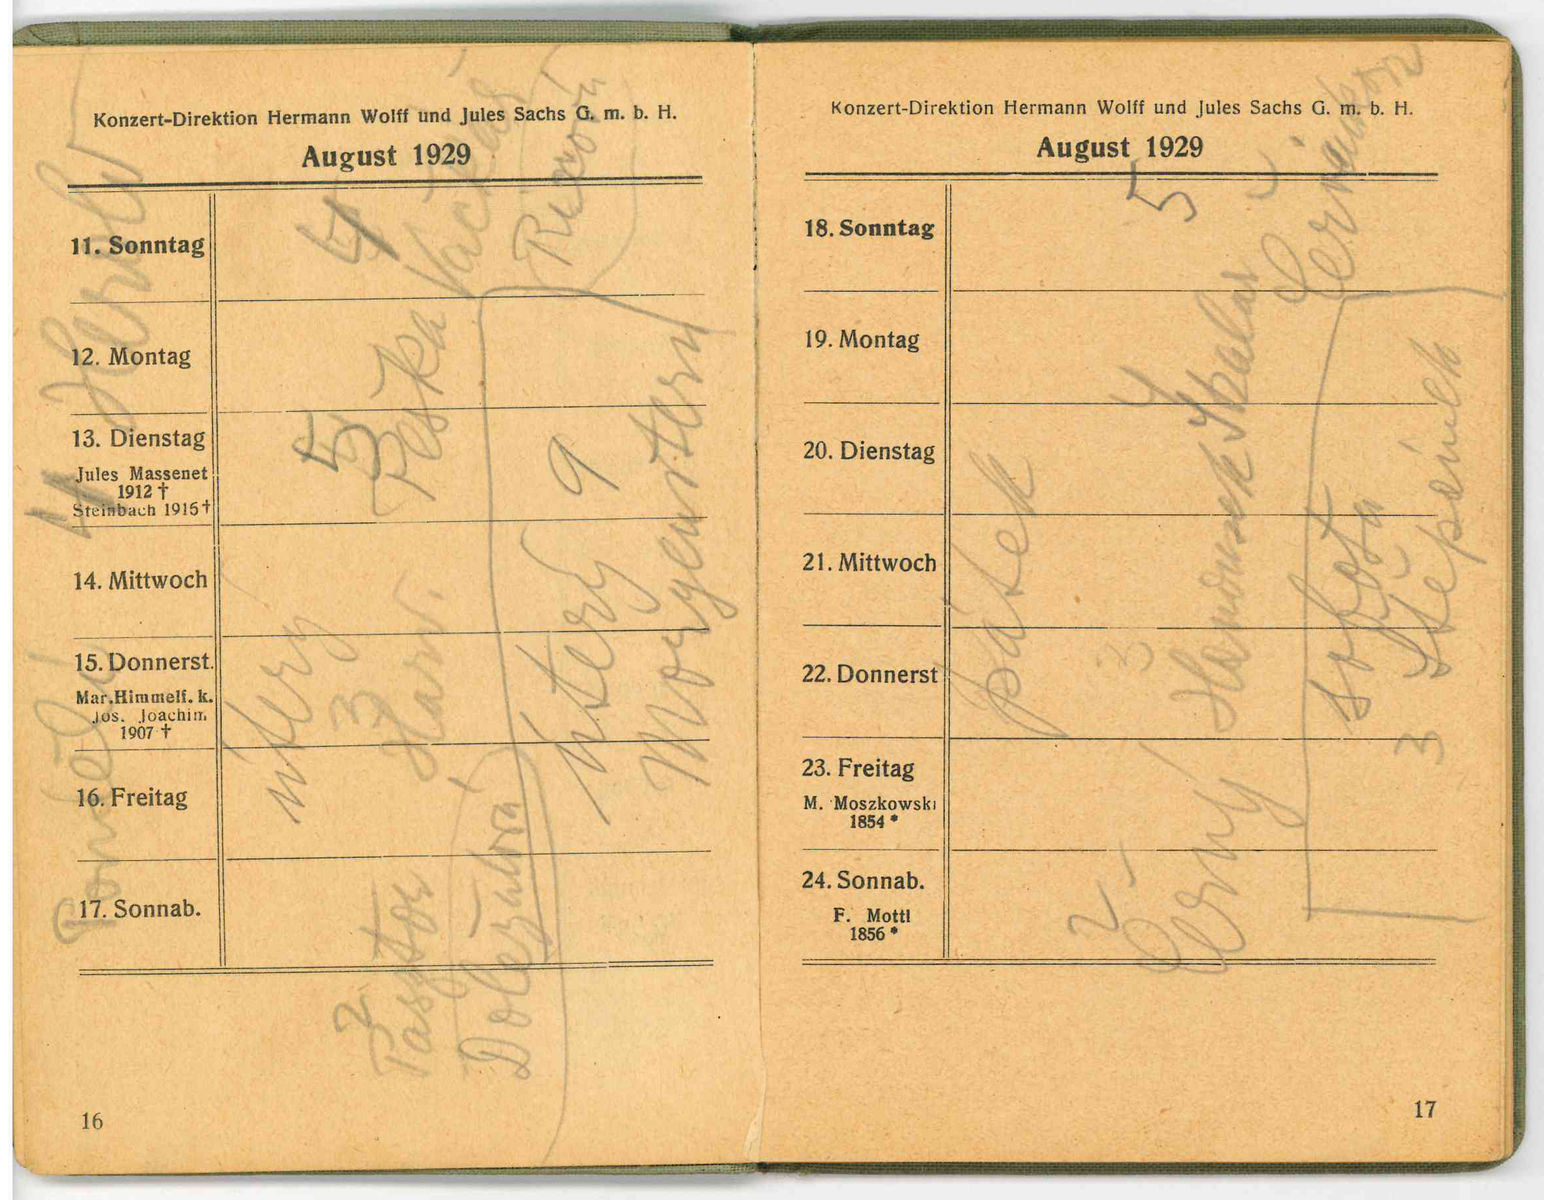 Konzert-Direktion Hermann Wolff und Jules Sachs G. m. b. H.
August 1929
11. Sonntag
12. Montag
13. Dienstag
Jules Massenet
1912 †
Steinbach 1915 †
14. Mittwoch
15. Donnerst.
Mar. Himmelf. k.
Jos. Joachim
1907 †
16. Freitag
17. Sonnab.
16
Pondělí 4 Herold
úterý
3 5 4
Harv. Peška Václav
2
Pastor
Doležalová
úterý 9
Morgenstern
Konzert-Direktion Hermann Wolff und Jules Sachs G. m. b. H.
August 1929
18. Sonntag
19. Montag
20. Dienstag
21. Mittwoch
22. Donnerst
23. Freitag
M. Moszkowski
1854 *
24. Sonnab.
F. Mottl
1856 *
17
pátek
2 3 4 5
Černý Hanousek Skalar
sobota
3 Štěpánek